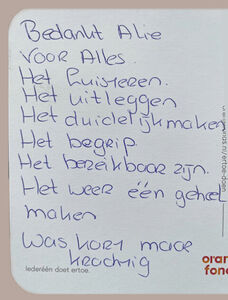 Bedankt Alie
voor Alles.
Het luisteren.
Het uitleggen
Het duidelijk maken
Het begrip
Het bereikbaar zijn.
Het weer één geheel
maken
Was kort maar
krachtig
Iederéén doet ertoe.
oran
fond